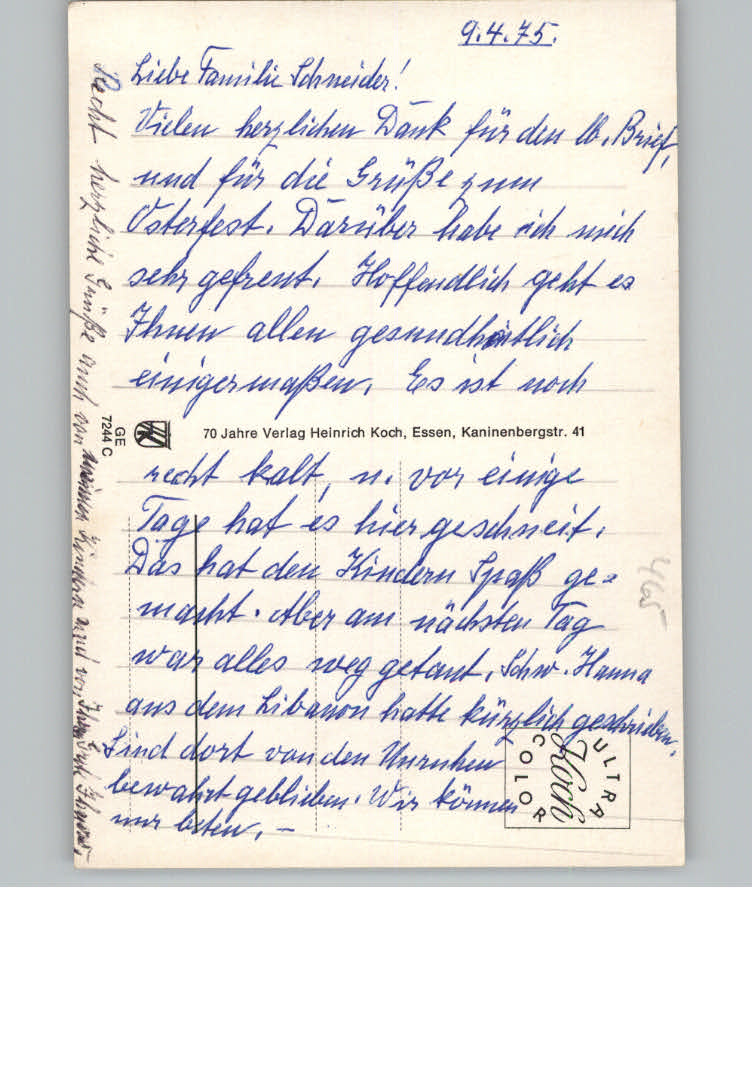 9.4.75.
Liebe Familie Schneider!
Vielen herzlichen Dank für den lb. Brief,
und für die Grüße zum
Osterfest. Darüber habe ich mich
sehr gefreut. Hoffendlich geht es
Ihnen allen gesundheitlich
einigermaßen. Es ist noch
GE
7244 C
70 Jahre Verlag Heinrich Koch, Essen, Kaninenbergstr. 41
recht kalt, u. vor einige
Tage hat es hier geschneit.
Das hat den Kindern Spaß ge-
macht. Aber am nächsten Tag
war alles weg getaut. Schw. Hanna
aus dem Libanon hatte kürzlich geschrieben.
Sind dort von den Unruhen
bewahrt geblieben. Wir können
nur beten. –
ULTRA
Koch
COLOR
465
Recht herzliche Grüße auch von meinen Kindern